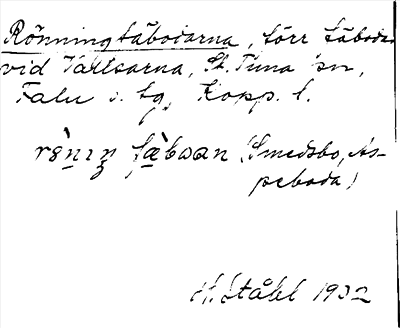 Rönningtäbodarna, förr täboda
vid Vallsarna, St. Tuna sn,
Falu i. tg, Kopp. l.
(Smedsbo, As-
peboda)
H. Ståhl 1932